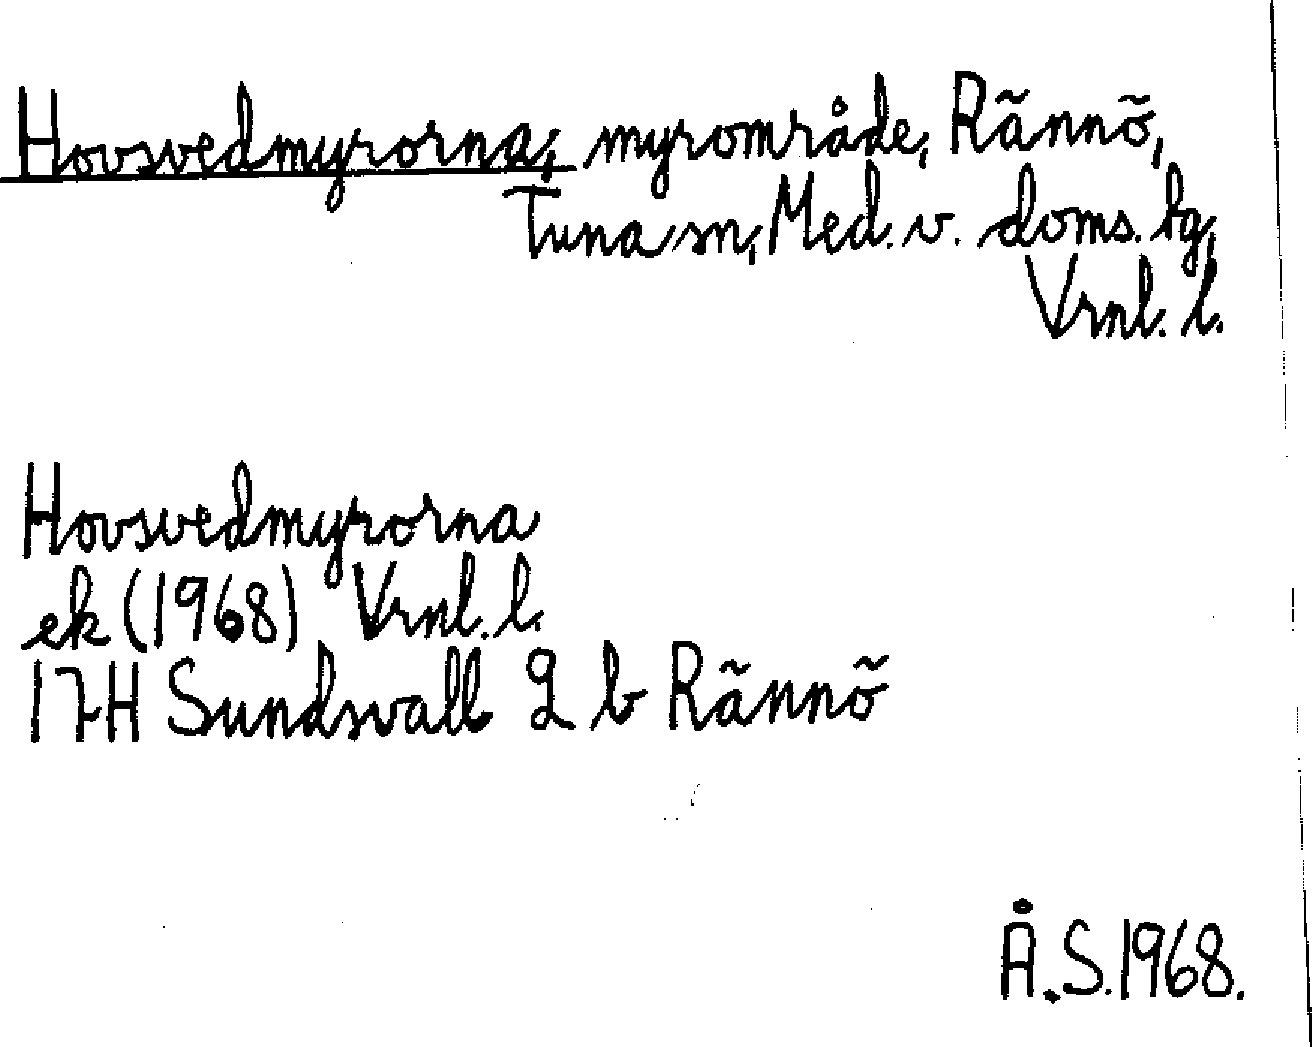 Hovsvedmyrorna; myrområde, Rännö,
Tuna sn, Med. v. doms. hg,
Vrnl. l.
Hovsvedmyrorna
ek (1968) Vrnl. l.
17H Sundsvall 2 b Rännö
Å.S.1968.